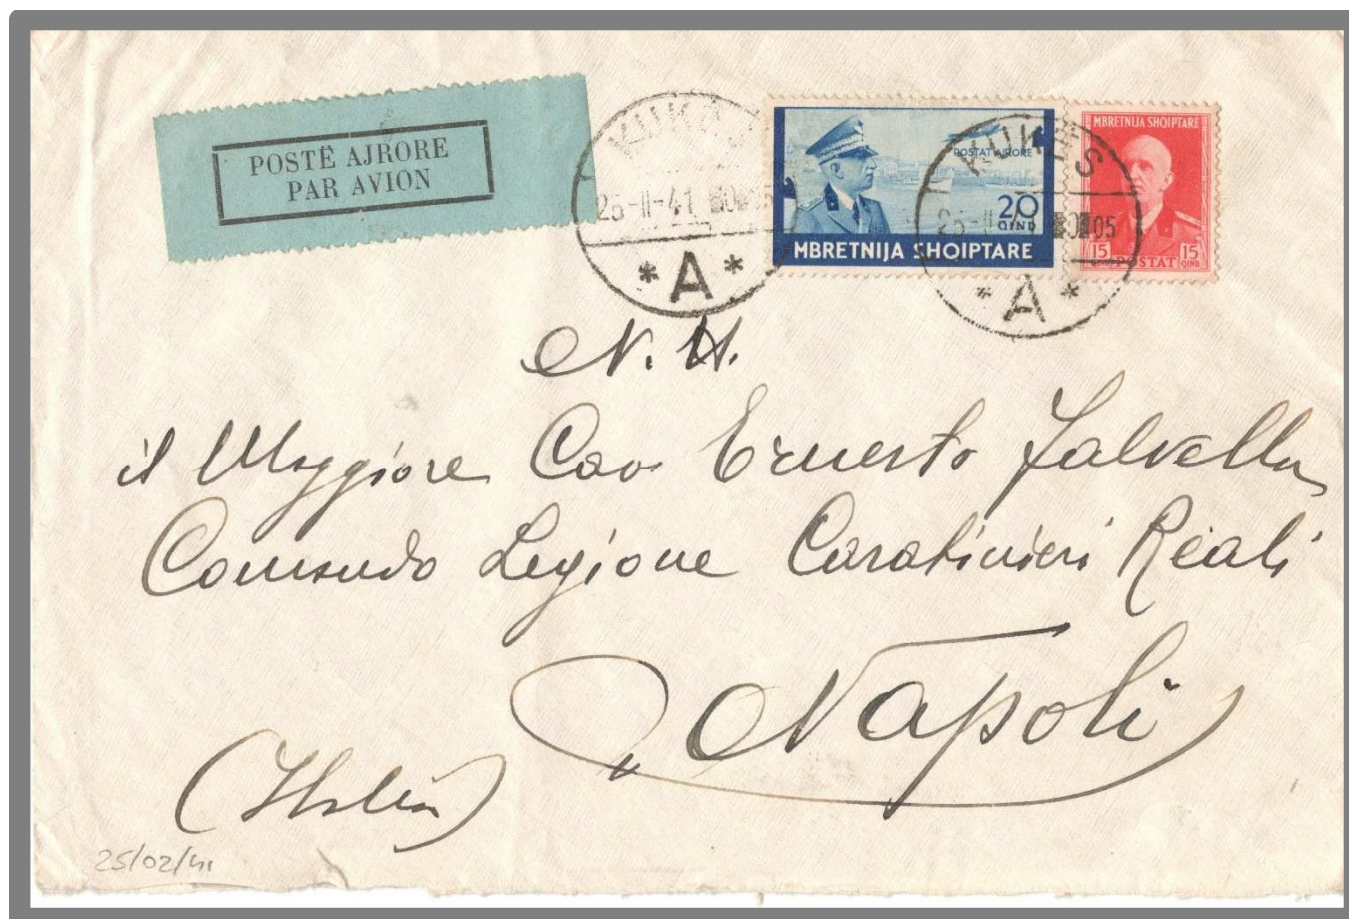 POSTË AJRORE
PAR AVION
KUKËS
25-II-41
* A *
POSTAT AJRORE
20
QIND
MBRETNIJA SHQIPTARE
KUKËS
25-II
05
* A *
MBRETNIJA SHQIPTARE
15 15
QIND
POSTAT
N. H.
il Maggiore Cav Ernesto Salvella
Comando Legione Carabinieri Reali
Napoli
(Italia)
25/02/41